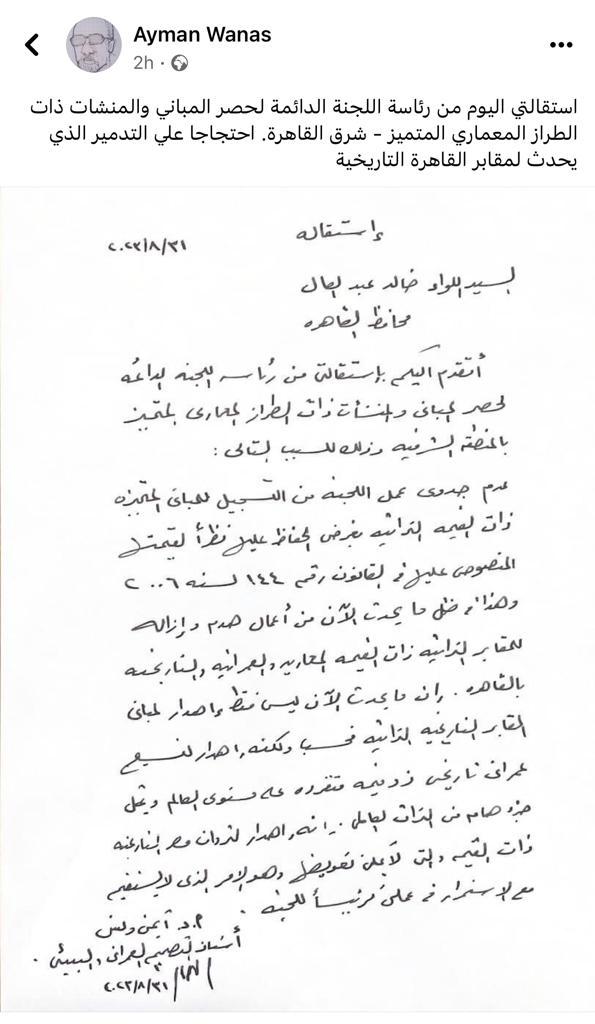 Ayman Wanas
2h
استقالتي اليوم من رئاسة اللجنة الدائمة لحصر المباني والمنشات ذات
الطراز المعماري المتميز - شرق القاهرة. احتجاجا علي التدمير الذي
يحدث لمقابر القاهرة التاريخية
إستقاله
٢٠٢٣/٨/٣١
السيد اللواء خالد عبد العال
محافظ القاهره
أتقدم إليكم بإستقالتى من رئاسه اللجنه الدائمه
لحصر المبانى والمنشأت ذات الطراز المعمارى المتميز
بالمنطقه الشرقيه وذلك للسبب التالى :
عدم جدوى عمل اللجنه من التسجيل للمبانى المتميزه
ذات القيمه التراثيه بغرض الحفاظ عليها نظراً لقيمتها
المنصوص عليها فى القانون رقم ١٤٤ لسنه ٢٠٠٦
وهذا فى ظل ما يحدث الآن من أعمال هدم وإزاله
للمقابر التراثيه ذات القيمه المعماريه والعمرانيه والتاريخيه
بالقاهره . وإن ما يحدث الآن ليس فقط إهدار لمبانى
المقابر التاريخيه التراثيه فحسب ولكنه إهدار لنسيج
عمرانى تاريخى ذو قيمه متفرده على مستوى العالم ويمثل
جزء هام من التراث العالمى . إنه إهدار لثروات مصر التاريخيه
ذات القيمه والتى لا يمكن تعويضها وهو الامر الذى لا يستقيم
مع الاستمرار فى عملى كرئيساً للجنه .
أ.د. أيمن ونس
أستاذ التصميم العمرانى والبيئى .
٢٠٢٣/٨/٣١